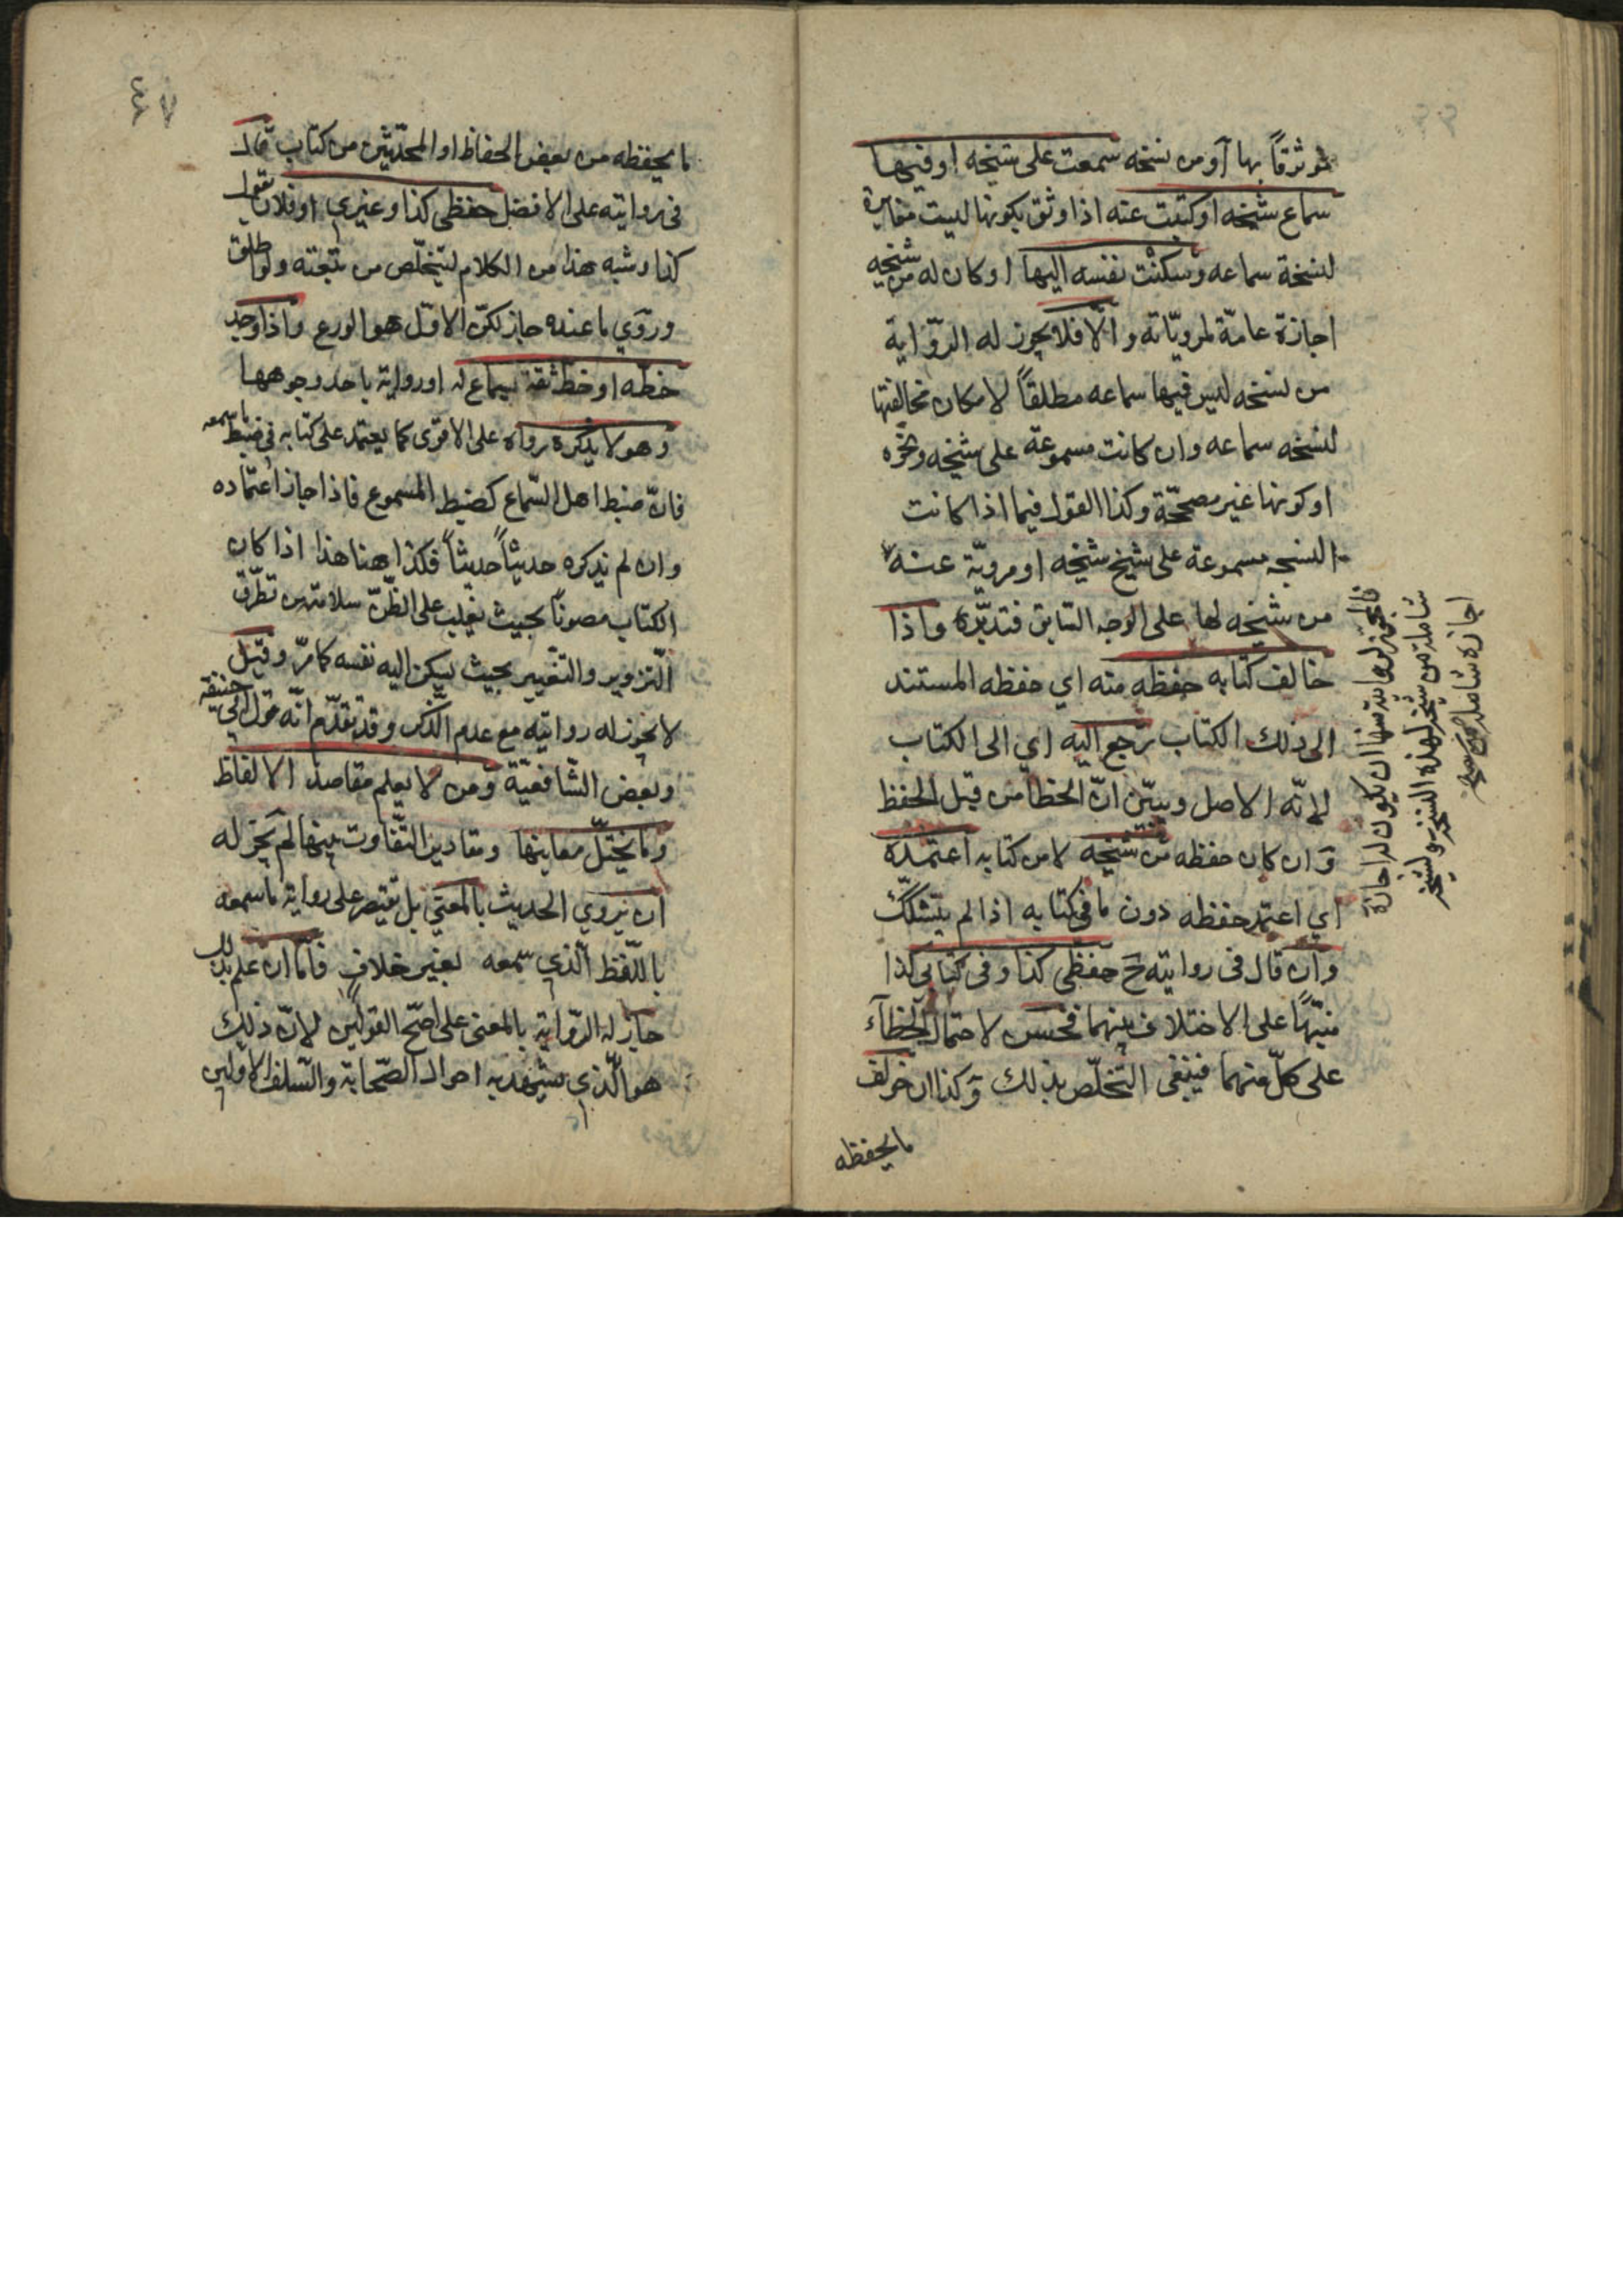 موثوقاً بها أو من نسخه سمعت على شيخه او فيها
سماع شيخه او كتبت عنه اذا وثق بكونها ليست مغايرة
لنسخة سماعه وسكنت نفسه اليها او كان له من شيخه
اجازة عامّة لمرويّاته والّا فلا يجوز له الرّواية
من نسخه ليس فيها سماعه مطلقاً لامكان مخالفتها
لنسخه سماعه وان كانت مسموعة على شيخه ونحوه
او كونها غير مصحّحة وكذا القول فيما اذا كانت
النسخه مسموعة على شيخ شيخه او مرويّة عنه
فالمجوّز لروايته منها ان يكون له اجازة
شاملة من شيخه لهذه النسخه ولشيخه
اجازة شاملة من شيخه
من شيخه لها على الوجه السابق فتدبّره واذا
خالف كتابه حفظه منه اي حفظه المستند
الى ذلك الكتاب رجع اليه اي الى الكتاب
لانّه الاصل وبيّن انّ الخطأ من قبل الحفظ
وان كان حفظه من شيخه لا من كتابه اعتمده
اي اعتمد حفظه دون ما في كتابه اذا لم يتشكّك
وان قال في روايته ح حفظي كذا وفي كتابي كذا
منبّهاً على الاختلاف بينهما فحسن لاحتمال الخطآء
على كلّ منهما فينبغي التخلّص بذلك وكذا ان خولف
ما يحفظه
٤٧
ما يحفظه من بعض الحفاظ او المحدّثين من كتاب قال
في روايته على الافضل حفظي كذا وغيري او فلان يقول
كذا وشبه هذا من الكلام ليتخلّص من تبعته ولو اطلق
وروي ما عنده جاز لكنّ الاوّل هو الورع واذا وجد
خطّه او خطّ ثقة بسماع له او رواية باحد وجوهها
وهو لا يذكره رواه على الاقوى كما يعتمد على كتابه في ضبط ما سمعه
فانّ ضبط اهل السّماع كضبط المسموع فاذا جاز اعتماده
وان لم يذكره حديثاً حديثاً فكذا هنا هذا اذا كان
الكتاب مصوناً بحيث يغلب على الظنّ سلامته من تطرّق
التّزوير والتغيير بحيث يسكن اليه نفسه كما مرّ وقيل
لا يجوز له روايته مع عدم الذّكر وقد تقدّم انّه قول ابي حنيفة
وبعض الشّافعيّة ومن لا يعلم مقاصد الالفاظ
وما يختلّ معانيها ومقادير التّفاوت بينها لم يجز له
ان يروي الحديث بالمعني بل يقتصر على رواية ما سمعه
باللّفظ الّذي سمعه بغير خلاف فامّا ان علم بذلك
جاز له الرّواية بالمعنى على اصحّ القولين لانّ ذلك
هو الّذي يشهد به احوال الصّحابة والسّلف الاولين